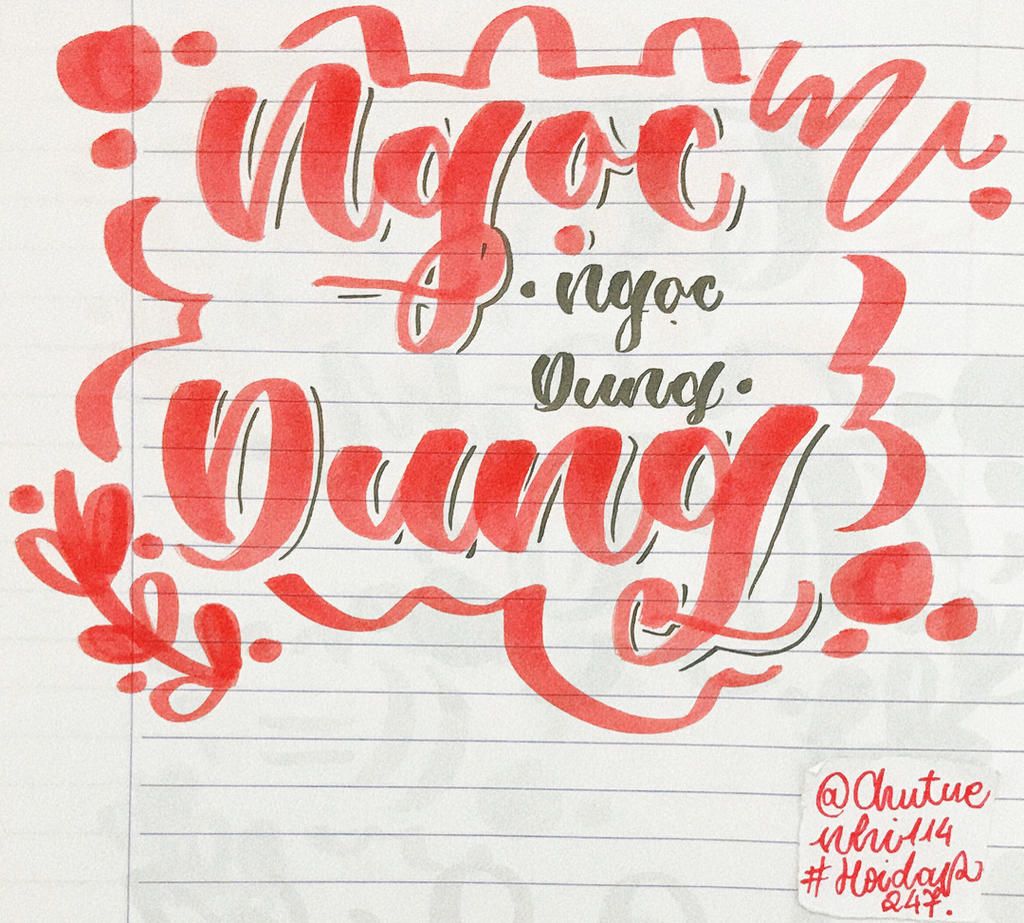 Ngọc
• Ngọc
Dung •
Dung
@Chutue
nhi114
#Hoidap
247.